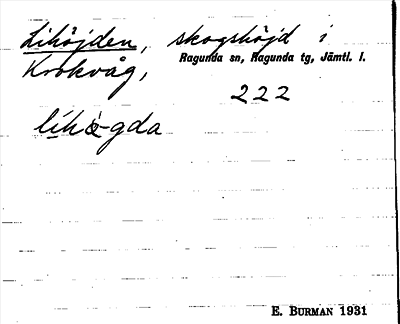 Lihöjden, skogshöjd i
Krokvåg, Ragunda sn, Ragunda tg, Jämtl. l.
222
E. BURMAN 1931